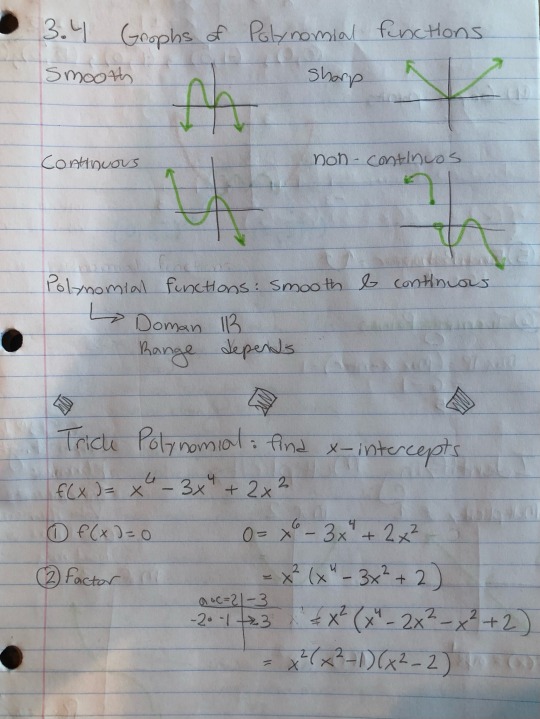 3.4 Graphs of Polynomial functions
Smooth
Sharp
Continuous
non-continuos
Polynomial functions: smooth & continuous
↳ Doman ℝ
Range depends
Trick Polynomial: find x-intercepts
f(x)= x⁶ - 3x⁴ + 2x²
① f(x)=0 0= x⁶ - 3x⁴ + 2x²
② factor = x² (x⁴ - 3x² + 2)
a·c=2 | -3
-2· -1 → -3 = x² (x⁴ - 2x² - x² + 2)
= x²(x²-1)(x²-2)